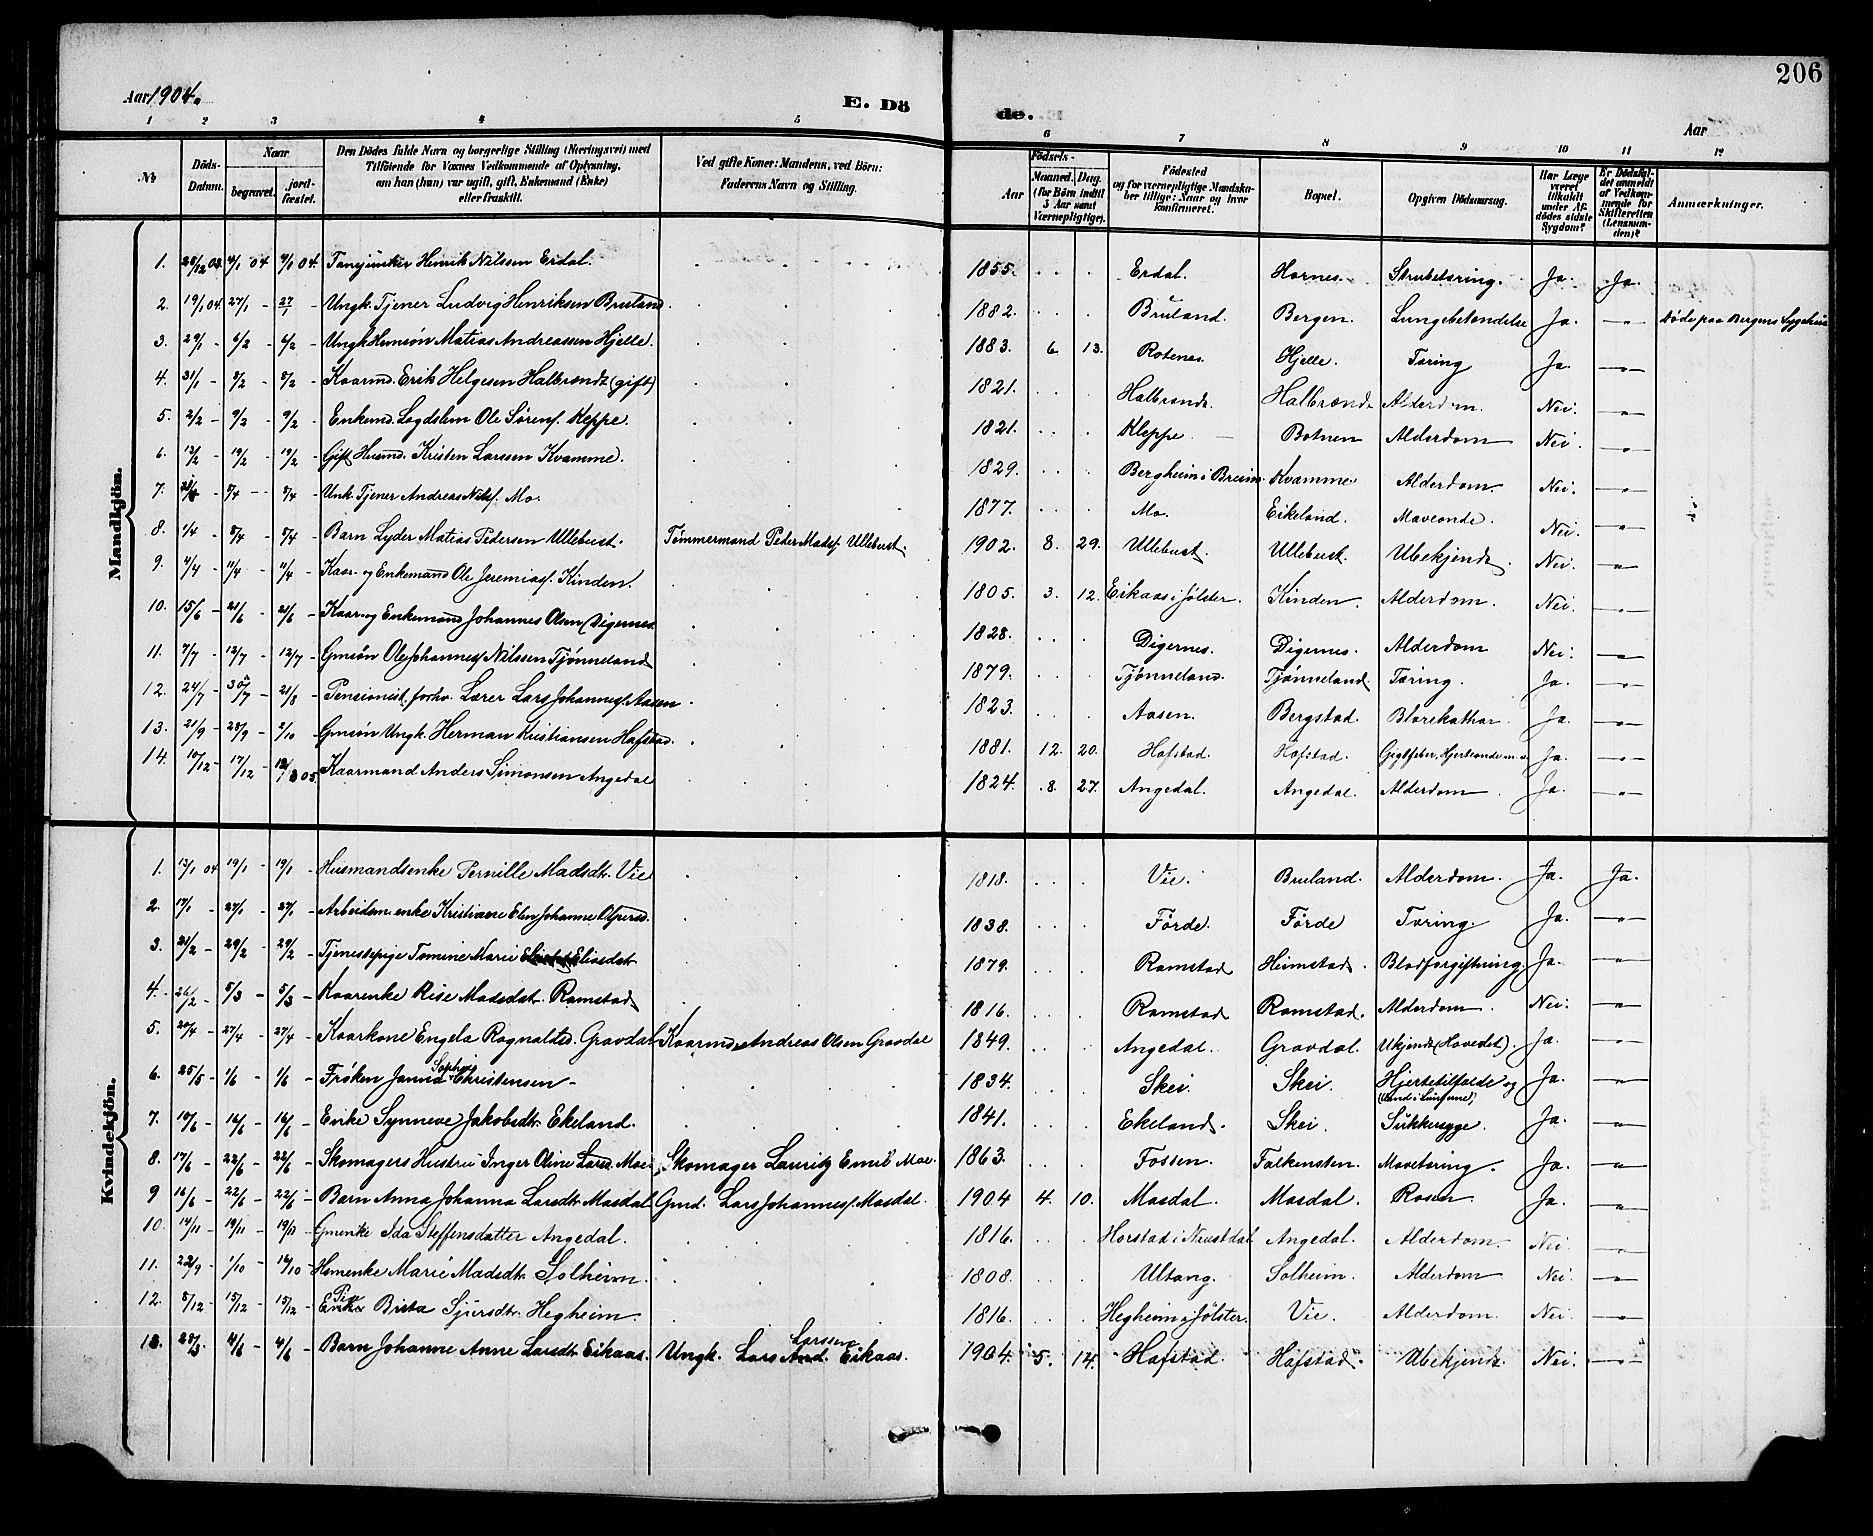 206
Aar 1904.
E. Dö
de.
Aar
1 2 3 4 5 6 7 8 9 10 11 12
№
Döds-Datum.
Naar
begravet.
jordfæstet.
Den Dödes fulde Navn og borgerlige Stilling (Næringsvei) med Tilföiende for Voxnes Vedkommende af Oplysning, om han (hun) var ugift, gift, Enkemand (Enke) eller fraskilt.
Ved gifte Koner: Mandens, ved Börn: Faderens Navn og Stilling.
Födsels-
Aar
Maaned. Dag.
(for Börn indtil 3 Aar samt Værnepligtige).
Födested og for værnepligtige Mandskaber tillige: Naar og hvor konfirmeret.
Bopæl.
Opgiven Dödsaarsag.
Har Læge været tilkaldt under Afdödes sidste Sygdom?
Er Dödsfaldet anmeldt af Vedkommende for Skifteretten (Lensmanden)?
Anmærkninger.
Mandkjön.
1. 28/12 03 4/1 04 4/1 04. Henrik Nilssen Erdal. 1855. Erdal. Hornes. Strubetæring. Ja. Ja.
2. 19/1 04 27/1 - 27/1 - Ungk. Tjener Ludvig Henriksen Bruland 1882. Bruland. Bergen. Lungebetændelse Ja. -"- Døde paa Bergens Sygehus
3. 29/1 - 6/2 - 6/2 - Ungk. Hmsøn Matias Andreassen Hjelle. 1883. 6. 13. Rotenes. Hjelle. Tæring Ja. -"-
4. 31/1 - 8/2 - 8/2 - Kaarmd. Erik Helgesen Halbrendt (gift) 1821. Halbrendt. Halbrendt Alderdom. Nei. -"-
5. 2/2 - 9/2 - 9/2 - Enkemd. Legdslem Ole Sørens. Kleppe. 1821. Kleppe. Botnen Alderdom Nei. -"-
6. 13/2 - 19/2 - 19/2 - Gift Husmd. Kristen Larssen Kvamme. 1829. Bergheim i Breim. Kvamme Alderdom. Nei. -"-
7. 5/4 - 5/4 - Unk. Tjener Andreas Nils. Mo. 1877. Mo. Eikeland. Maveonde. Nei. -"-
8. 1/4 8/4 - 8/4 - Barn Lyder Matias Pedersen Ullebust. Tømmermand Peder Mads. Ullebust. 1902. 8. 29. Ullebust. Ullebust. Ubekjendt. Nei. -"-
9. 4/4 11/4 - 11/4 - Kaar- og Enkemand Ole Jeremias. Kinden. 1805. 3. 12. Eikaas i Jølster. Kinden. Alderdom. Nei. -"-
10. 15/6 - 21/6 - 21/6 - Kaar- og Enkemand Johannes Olsen Digernes. 1828. Digernes. Digernes. Alderdom Nei. -"-
11. 7/7 - 12/7 - 12/7 - Gmsøn Ole Johannes Nilssen Tjønneland 1879. Tjønneland. Tjønneland Tæring. Ja. -"-
12. 24/7 - 30/7 - 21/8 - Pensionist, forhv. Lærer Lars Johannes. Aasen 1823. Aasen. Bergstad. Blærekathar. Ja. -"-
13. 21/9 - 28/9 - 2/10 - Gmsøn Ungk. Herman Kristiansen Hafstad. 1881. 12. 20. Hafstad. Hafstad. Gigtfeber, Hjerteonde m. Ja. -"-
14. 10/12 - 17/12 - 05. Kaarmand Anders Simonsen Angedal 1824. 8. 27. Angedal. Angedal. Alderdom. Ja. -"-
Kvindekjön.
1. 13/1 04 19/1 - 19/1 - Husmandsenke Pernille Madsdtr. Vie 1818. Vie. Bruland. Alderdom. Ja. Ja.
2. 17/1 - 27/1 - 27/1 - Arbeidsm. enke Kristiane Elen Johanne 1838. Førde. Førde Tæring. Ja. -"-
3. 21/2 - 29/2 - 29/2 - Tjenestepige Tomine Marie Eliasdat 1879. Ramstad Heimstad. Blodforgiftning. Ja. -"-
4. 26/2 - 5/3 - 5/3 - Kaarenke Rise Madsdat. Ramstad 1816. Ramstad Ramstad. Alderdom. Nei. -"-
5. 20/4 - 27/4 - 27/4 - Kaarkone Engela Ragnaldsd. Gravdal Kaarmd. Andreas Olsen Gravdal 1849. Angedal. Gravdal. Ukjendt (Hovedet). Ja. -"-
6. 25/5 - 1/6 - 1/6 - Frøken Janna Sophie Christensen - 1834. Skei. Skei. Hjertetilfælde og (Vand i Lungerne) Ja. -"-
7. 10/6 - 16/6 - 16/6 - Enke Synneve Jakobsdtr. Ekeland. 1841. Ekeland. Skei. Sukkersyge. Ja. -"-
8. 17/6 - 22/6 - 22/6 - Skomagers Hustru Inger Oline Larsd. Moe Skomager Lauritz Emil Moe. 1863. Fossen. Falkensten. Mavetæring. Ja. -"-
9 16/6 - 22/6 - 22/6 - Barn Anna Johanna Larsdtr. Masdal Gmd. Lars Johannes. Masdal. 1904 4. 10. Masdal. Masdal. Rosen Ja. -"-
10. 14/11 - 19/11 - 19/11 - Gmenke Ida Steffensdatter Angedal. 1816. Horstad i Neustdal Angedal. Alderdom. Nei. -"-
11. 22/9 - 1/10 - 14/10 - Hsmenke Marie Madsdtr. Solheim. 1808. Ultang. Solheim. Alderdom Nei. -"-
12. 8/12 - 15/12 - 15/12 - Pige Enke Birta Sjursdtr. Hegheim. 1816. Hegheim i Jølster. Vie. Alderdom Nei. -"-
13. 4/6 - 4/6 - Barn Johanne Anne Larsdtr. Eikaas. Ungk. Lars And. Larssen Eikaas. 1904. 5. 14. Hafstad. Hafstad. Ubekjendt. Nei. -"-